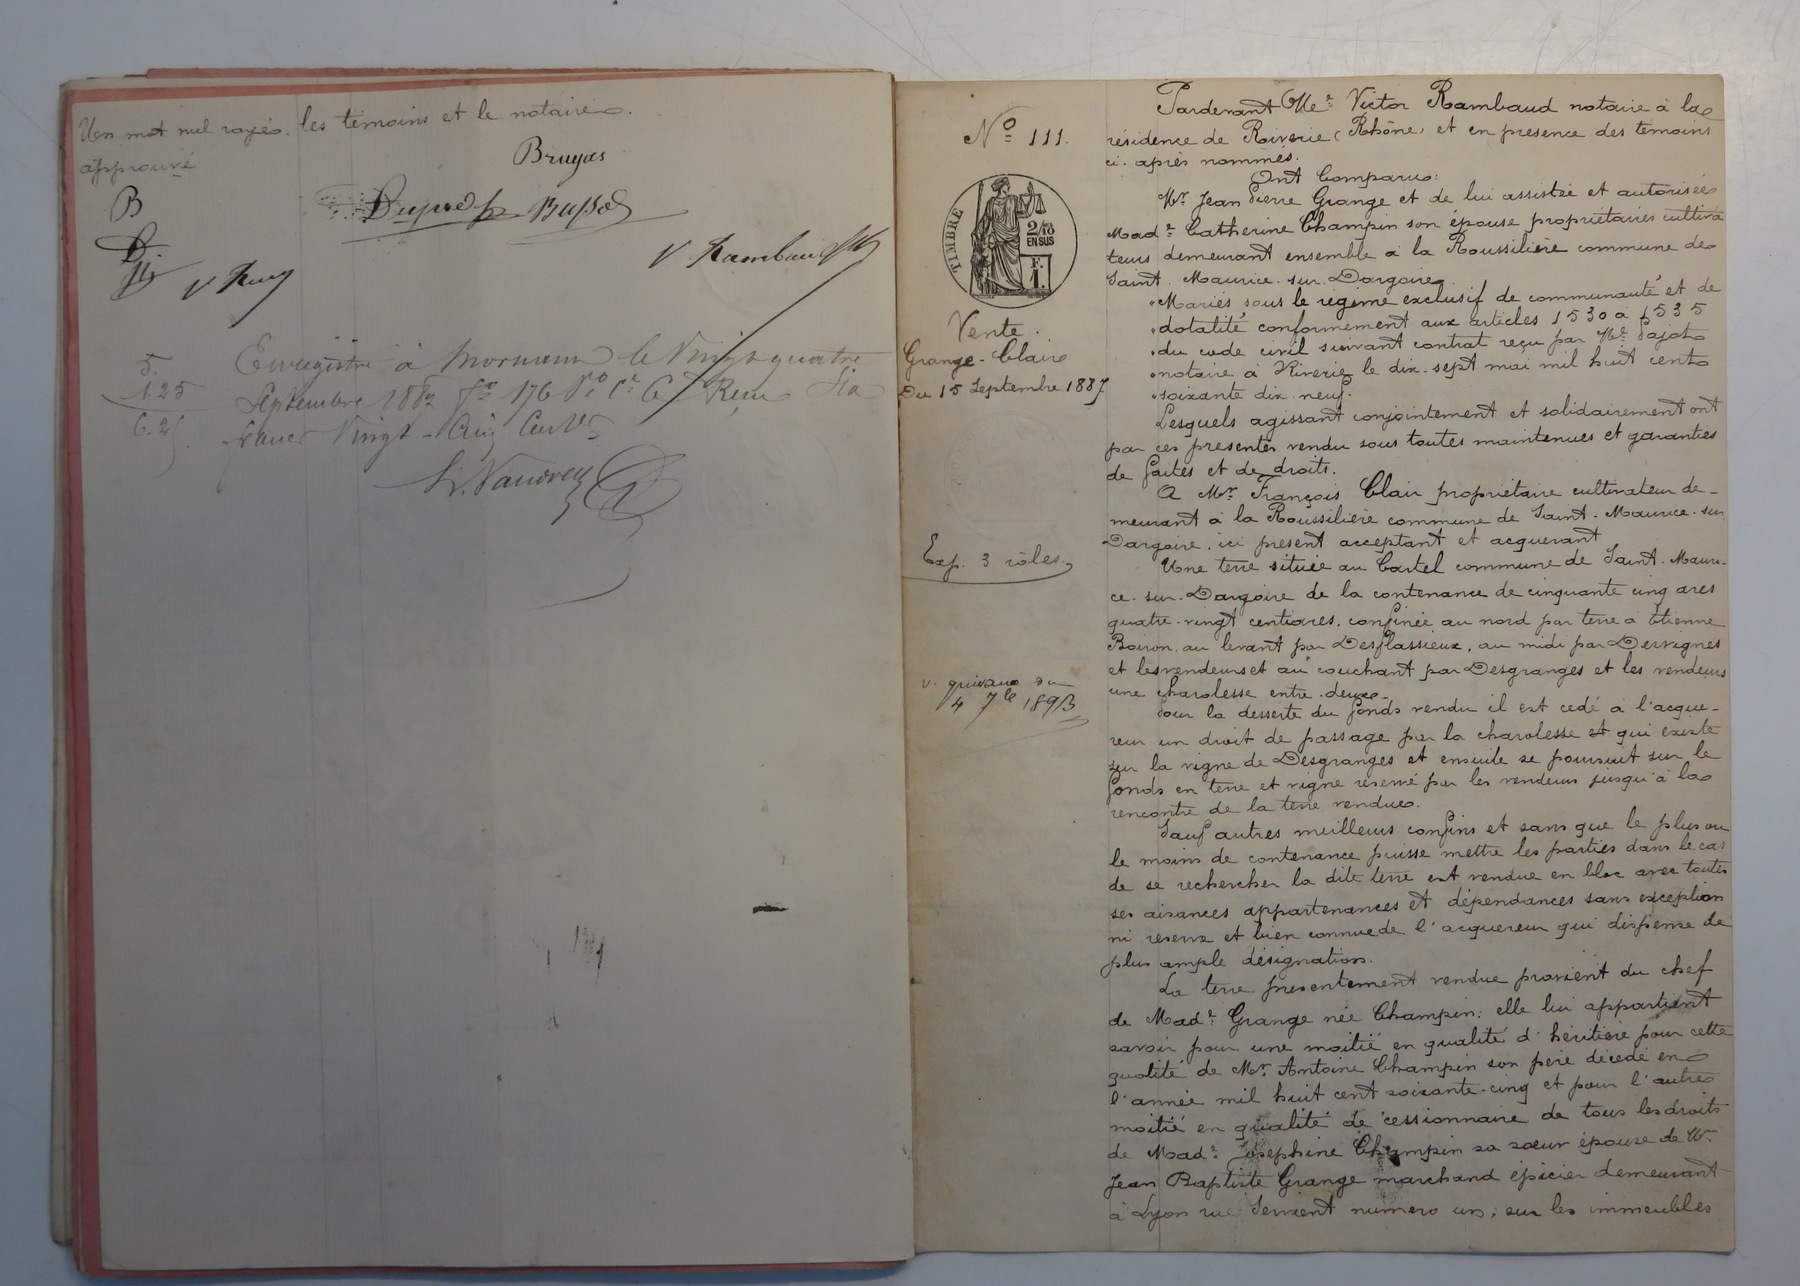 Un mot nul rayé. les témoins et le notaire.
approuvé
Bruyas
B
Bussod
V. Rambaud
Enregistré à Mornant le Vingt quatre
5.
1.25
Septembre 1887 fo 176 Vo Ce 6
6.25
francs Vingt-Cinq Centes
No 111.
TIMBRE
2/10
EN SUS
F.
1.
Vente.
Grange-Clair
Du 15 Septembre 1887
Exp. 3 rôles.
4 7bre 1893
Pardevant Me Victor Rambaud notaire à la
résidence de Riverie (Rhône) et en présence des témoins
ci-après nommés.
Ont Comparu:
Mr Jean Pierre Grange et de lui assistée et autorisée
Made Catherine Champin son épouse propriétaires cultiva
teurs demeurant ensemble à la Roussilière commune de
Saint-Maurice-sur-Dargoire
"Mariés sous le régime exclusif de communauté et de
"dotalité conformément aux articles 1530 à 1535
"du code civil suivant contrat reçu par Me Pajot
"notaire à Riverie le dix-sept mai mil huit cent
"soixante dix-neuf.
Lesquels agissant conjointement et solidairement ont
par ces présentes vendu sous toutes maintenues et garanties
de faites et de droits.
A Mr François Clair propriétaire cultivateur de-
meurant à la Roussilière commune de Saint-Maurice-sur
Dargoire, ici présent acceptant et acquerant
Une terre située au Cartel commune de Saint-Mauri-
ce-sur-Dargoire de la contenance de cinquante cinq ares
quatre-vingt centiares, confinée au nord par terre à Etienne
Boiron, au levant par Desflassieux, au midi par Dervignes
et les vendeurs et au couchant par Desgranges et les vendeurs
une charolesse entre-deux-
Pour la desserte du fonds vendu il est cédé à l'acqué-
reur un droit de passage par la charolesse et qui existe
sur la vigne de Desgranges et ensuite se poursuit sur le
fonds en terre et vigne réservé par les vendeurs jusqu'à la
rencontre de la terre vendue.
Sauf autres meilleurs confins et sans que le plus ou
le moins de contenance puisse mettre les parties dans le cas
de se rechercher la dite terre est vendue en bloc avec toutes
ses aisances appartenances et dépendances sans exception
ni réserve et bien connue de l'acquereur qui dispense de
plus ample désignation.
La terre présentement vendue provient du chef
de Made Grange née Champin; elle lui appartient
savoir pour une moitié en qualité d'héritière pour cette
qualité de Mr Antoine Champin son père décédé en
l'année mil huit cent soixante-cinq et pour l'autre
moitié en qualité de cessionnaire de tous les droits
de Made Josephine Champin sa sœur épouse de Mr
Jean Baptiste Grange marchand épicier demeurant
à Lyon rue Servient numéro un, sur les immeubles